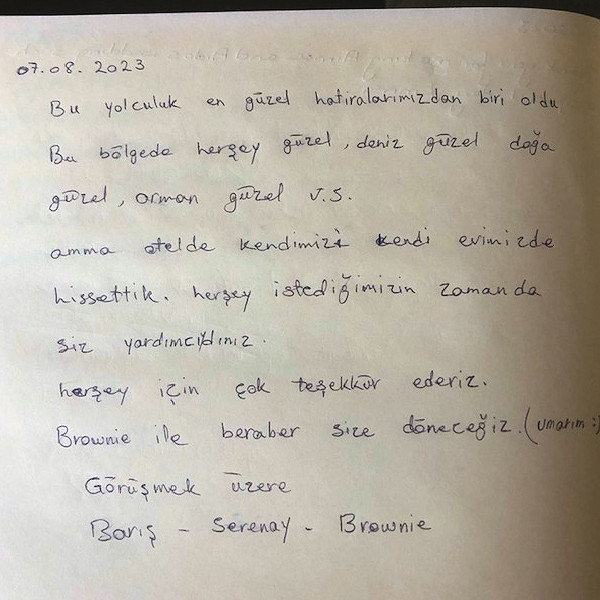 07.08.2023
Bu yolculuk en güzel hatıralarımızdan biri oldu
Bu bölgede herşey güzel, deniz güzel doğa
güzel, orman güzel v.s.
amma otelde kendimizi kendi evimizde
hissettik. herşey istediğimizin zamanda
siz yardımcıydınız.
herşey için çok teşekkür ederiz.
Brownie ile beraber size döneceğiz. (umarım :)
Görüşmek üzere
Barış - Serenay - Brownie